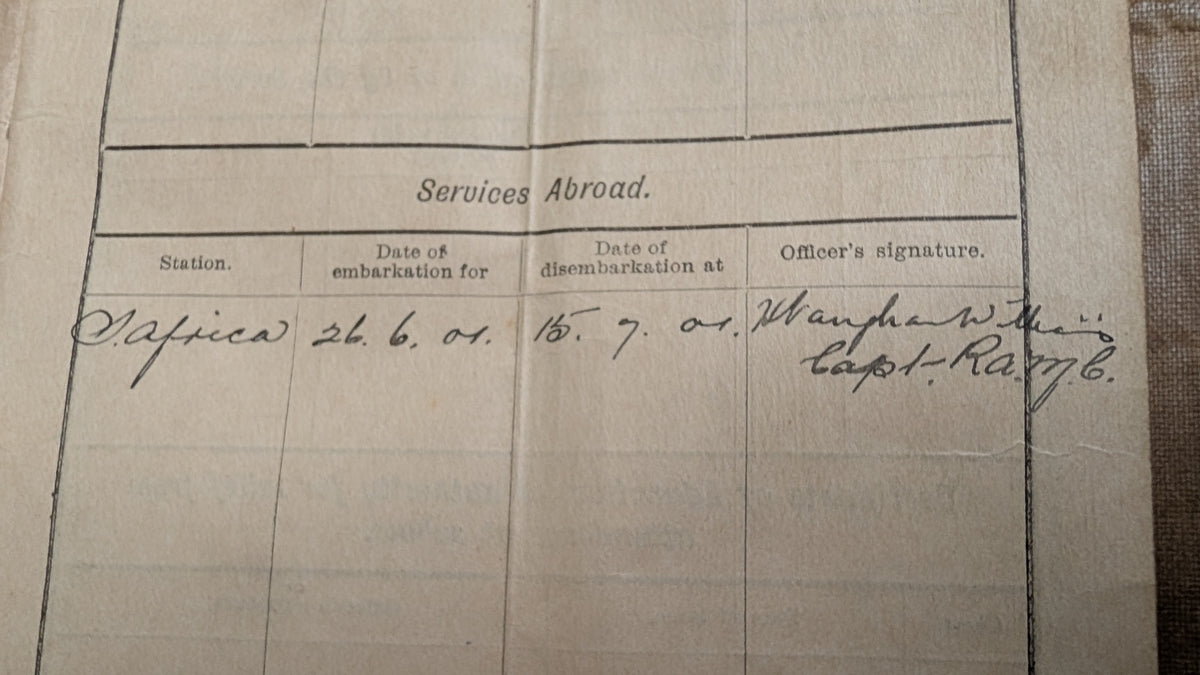 Services Abroad.
Station.
Date of
embarkation for
Date of
disembarkation at
Officer's signature.
S. Africa 26. 6. 01. 15. 7. 01. H Vaughan Williams
Capt. R.A.M.C.